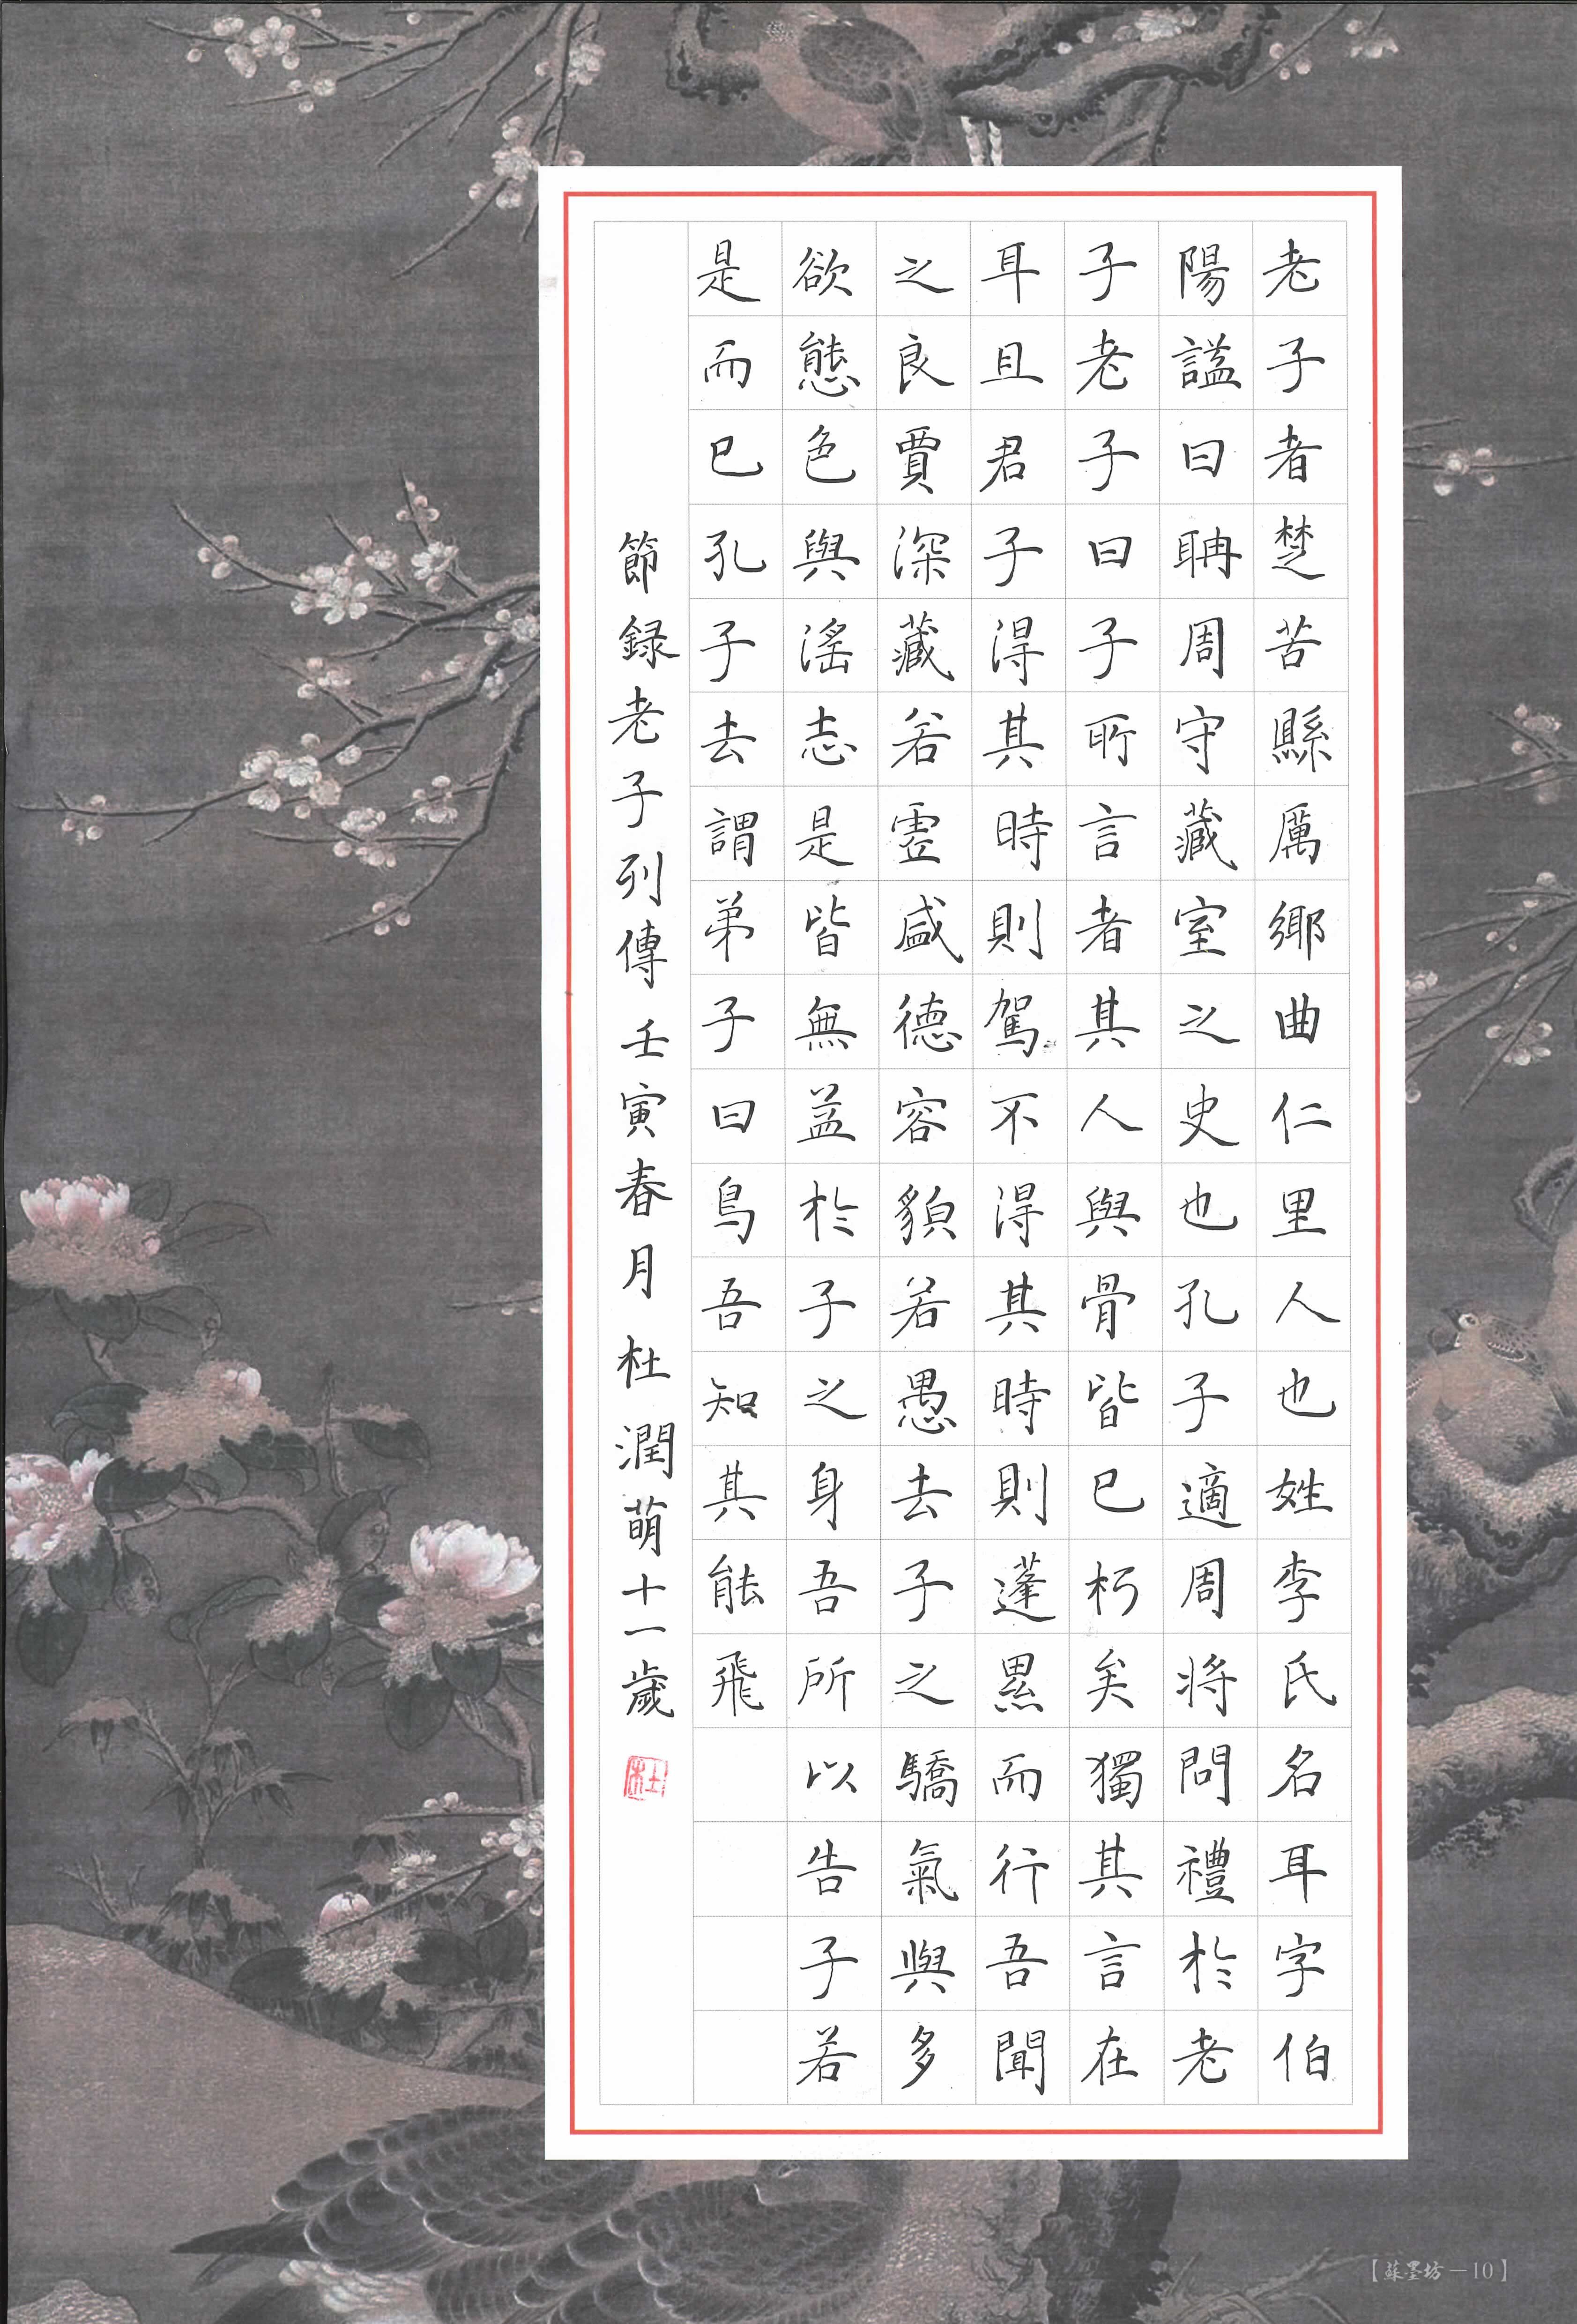 老子者楚苦縣厲鄉曲仁里人也姓李氏名耳字伯
陽諡曰聃周守藏室之史也孔子適周將問禮於老
子老子曰子所言者其人與骨皆已朽矣獨其言在
耳且君子得其時則駕不得其時則蓬累而行吾聞
之良賈深藏若虛盛德容貌若愚去子之驕氣與多
欲態色與淫志是皆無益於子之身吾所以告子若
是而已孔子去謂弟子曰鳥吾知其能飛
節録老子列傳壬寅春月杜潤萌十一歲
杜
【蘇墨坊－10】